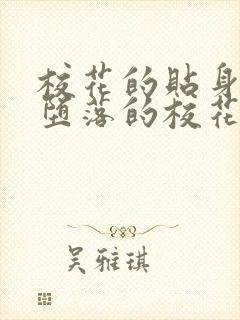 校花的貼身
堕落的校花
吴雅琪